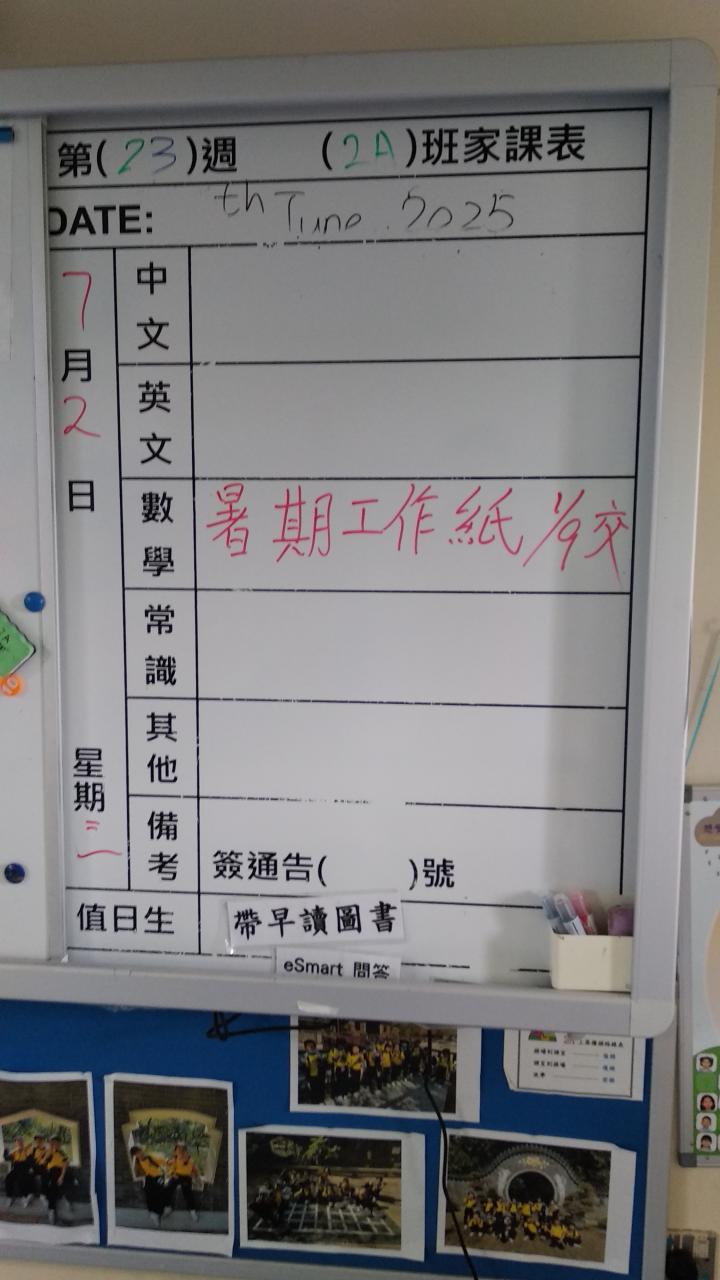 第(23)週 (2A)班家課表
DATE: th June 2025
7月2日 星期三
中文
英文
數學 暑期工作紙 1/9交
常識
其他
備考 簽通告( )號
值日生 帶早讀圖書
eSmart 問答